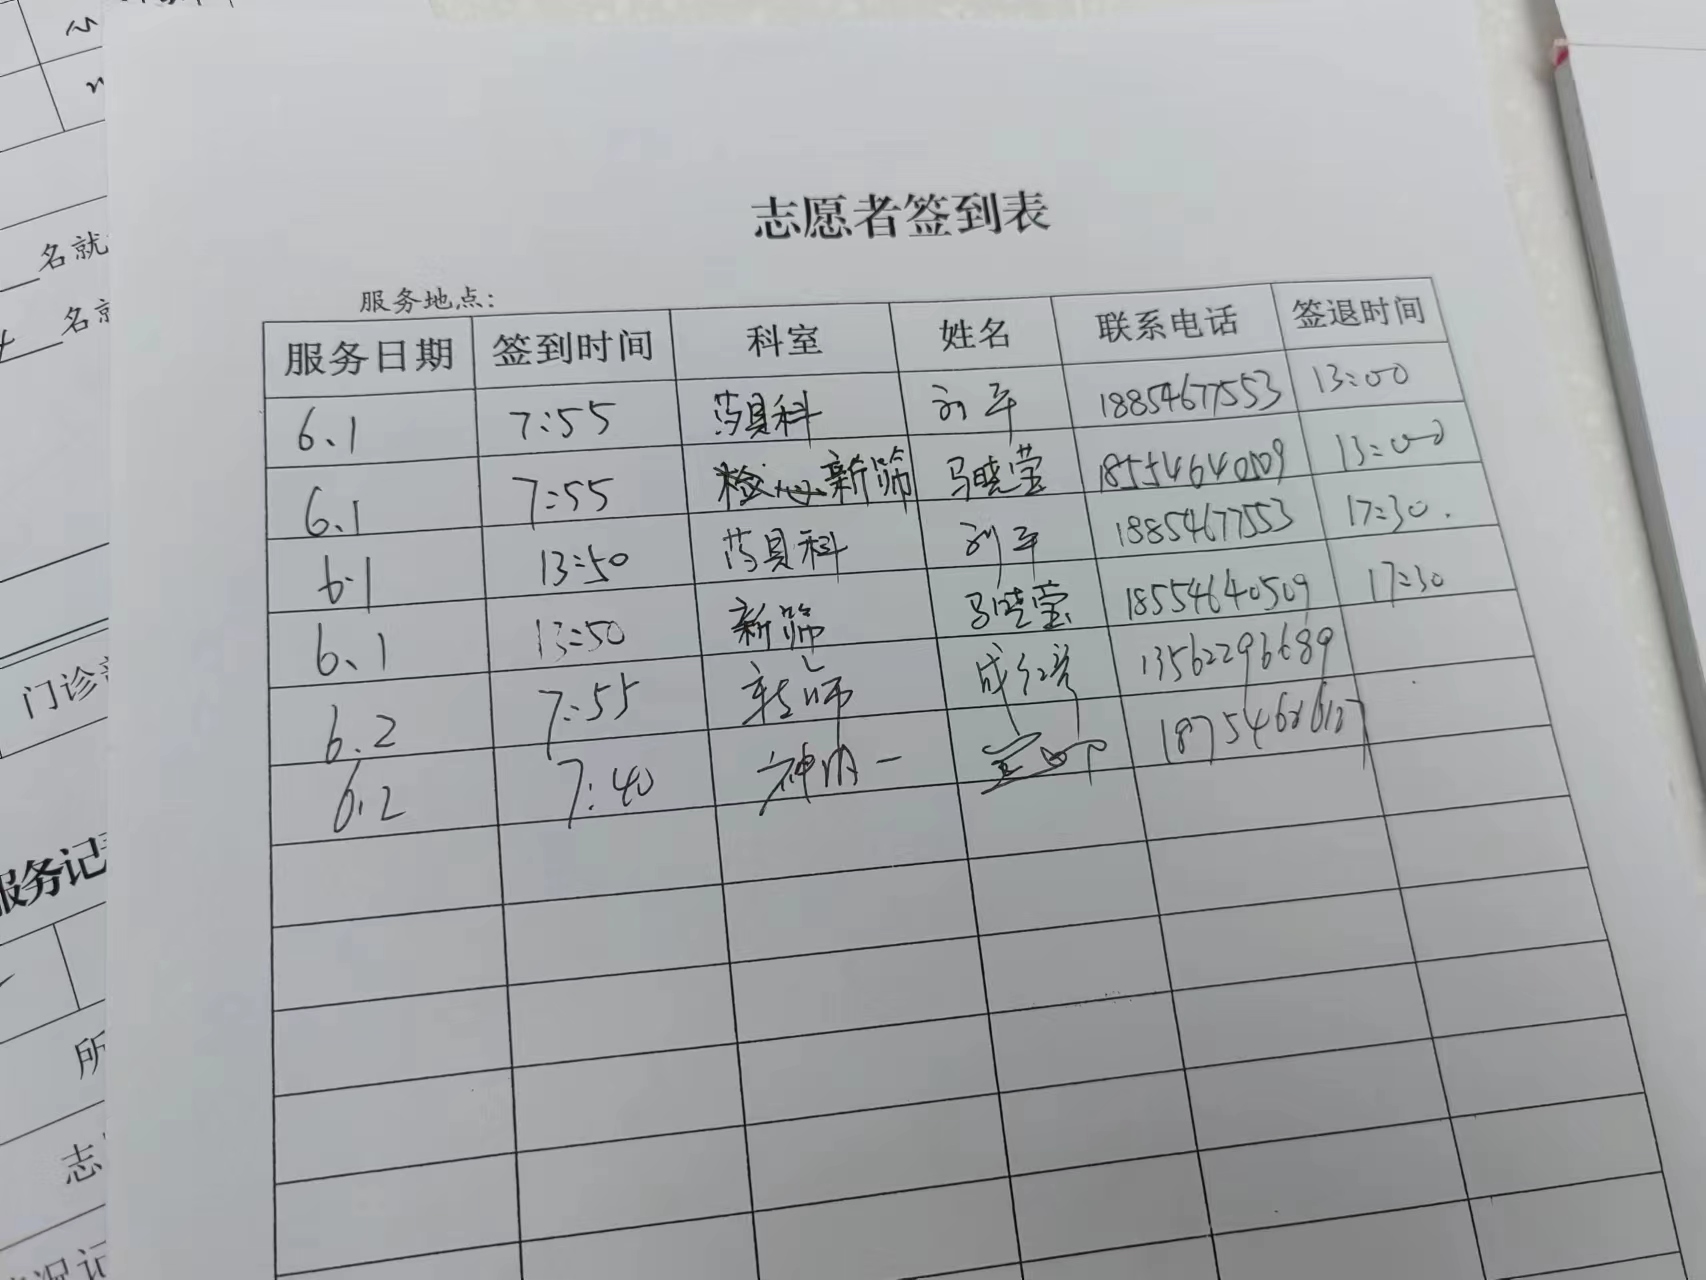 志愿者签到表
服务地点：
服务日期 签到时间 科室 姓名 联系电话 签退时间
6.1 7:55 药具科 刘平 18854677553 13:00
6.1 7:55 新筛 马晓莹 18554640509 13:00
6.1 13:50 药具科 刘平 18854677553 17:30.
6.1 13:50 新筛 马晓莹 18554640509 17:30
6.2 7:55 13562296689
6.2 7:40 神内一
名就
名就
门诊
服务记
所
志
况记